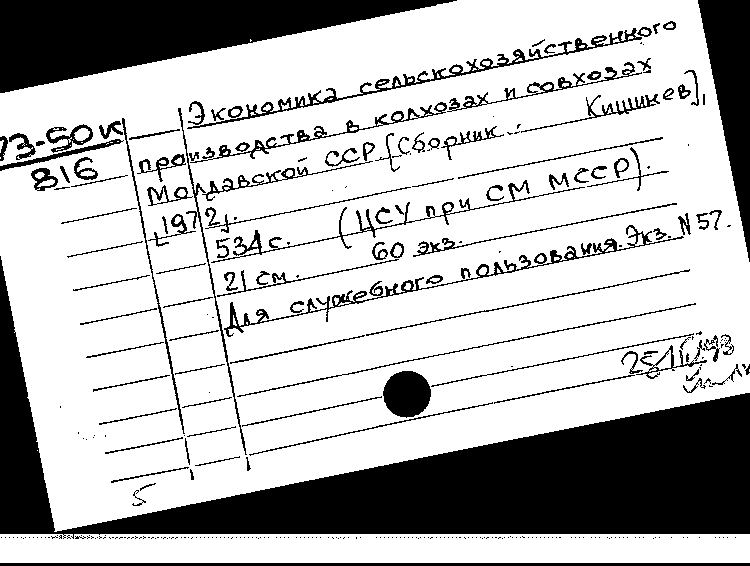 73-50к
816
Экономика сельскохозяйственного
производства в колхозах и совхозах
Молдавской ССР [Сборник. Кишинев],
[1972].
534 с. (ЦСУ при СМ МССР).
21 см. 60 экз.
Для служебного пользования. Экз. N 57.
5